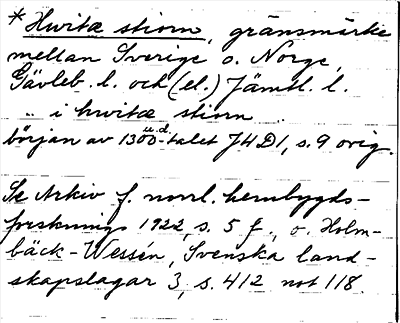 * Hwitæ stiorn, gränsmärke
mellan Sverige o. Norge,
Gävleb. l. och (el.) Jämtl. l.
.. i hwitæ stiorn
u.d.
början av 1300-talet JHD1, s. 9 orig.
Se Arkiv f. norrl. hembygds-
forsknings 1922, s. 5 f., o. Holm-
bäck-Wessén, Svenska land-
skapslagar 3, s. 412 not 118.